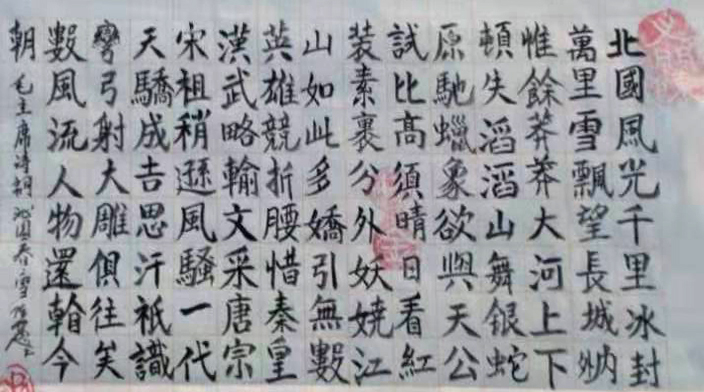 北國風光千里冰封
萬里雪飄望長城内外
惟餘莽莽大河上下
頓失滔滔山舞銀蛇
原馳蠟象欲與天公
試比高須晴日看紅
装素裹分外妖嬈江
山如此多嬌引無數
英雄競折腰惜秦皇
漢武略輸文采唐宗
宋祖稍遜風騷一代
天驕成吉思汗祇識
彎弓射大雕俱往矣
數風流人物還翰今
朝 毛主席诗詞沁園春雪